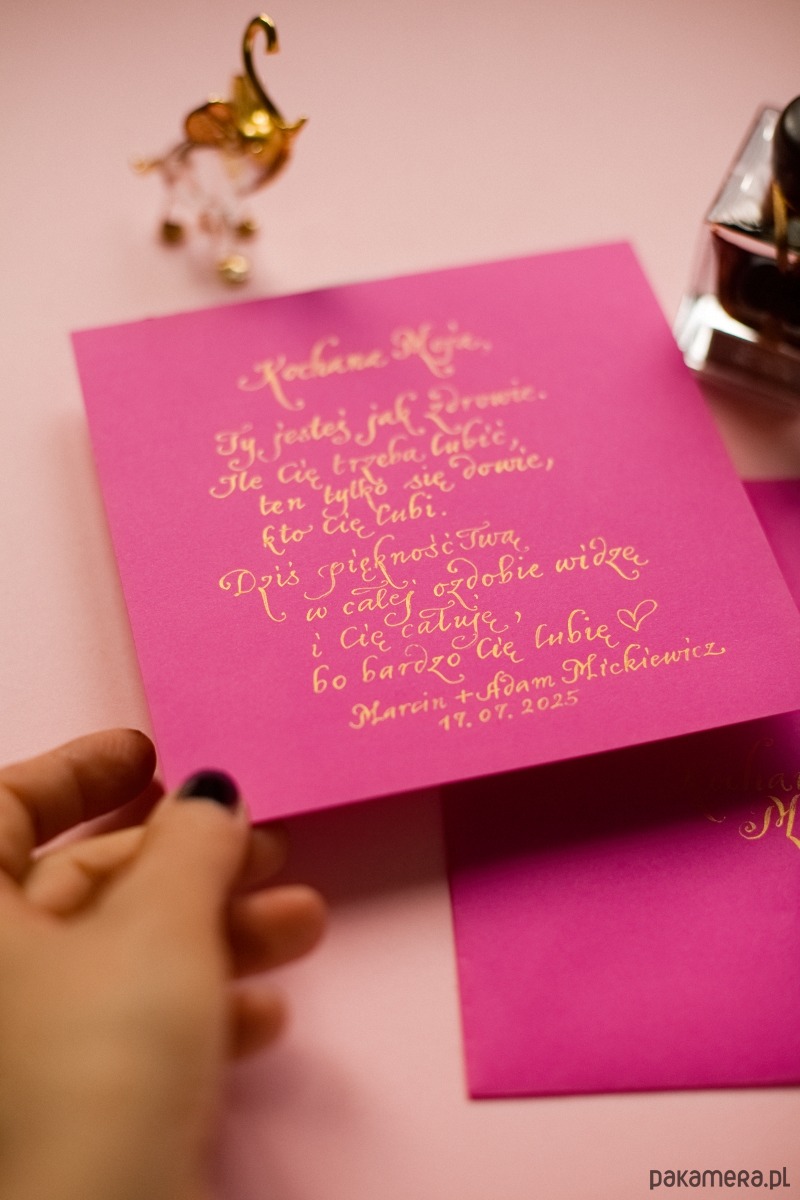 Kochana Moja,
Ty jesteś jak zdrowie.
Ile Cię trzeba lubić,
ten tylko się dowie,
kto Cię lubi.
Dziś piękność Twą
w całej ozdobie widzę
i Cię całuję,
bo bardzo Cię lubię ♡
Marcin + Adam Mickiewicz
17.07.2025
pakamera.pl